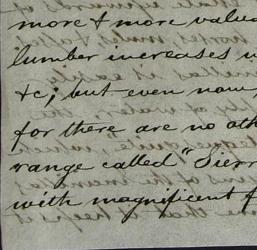 more & more valua
lumber increases w
&c; but even now,
for there are no oth
range called "Sierr
with magnificent f